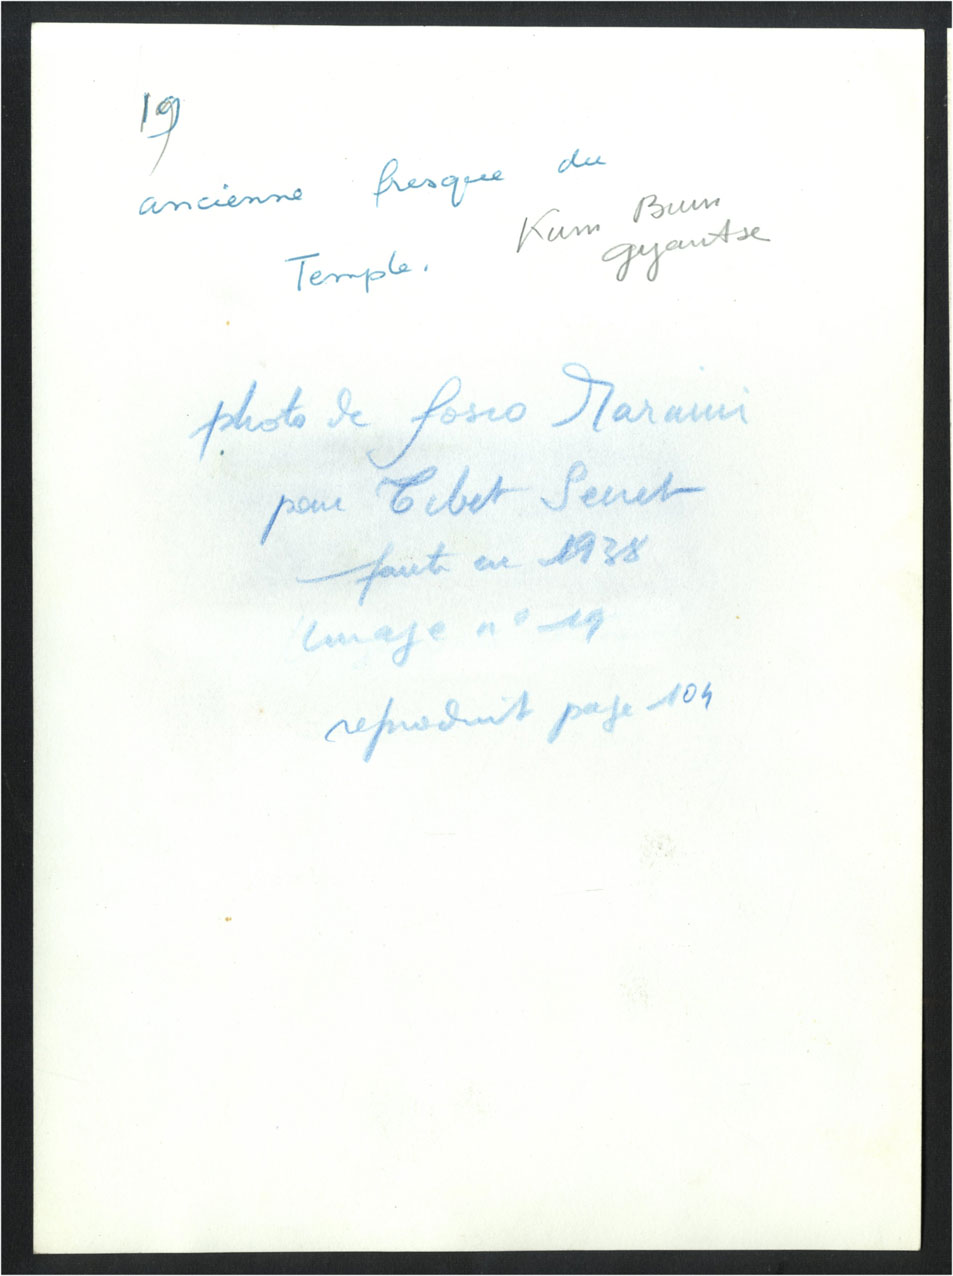 19
ancienne fresque du
Temple. Kum Bum
gyantse
photo de fosco Maraini
pour Tibet Secret
faite en 1938
image n° 19
reproduit page 104